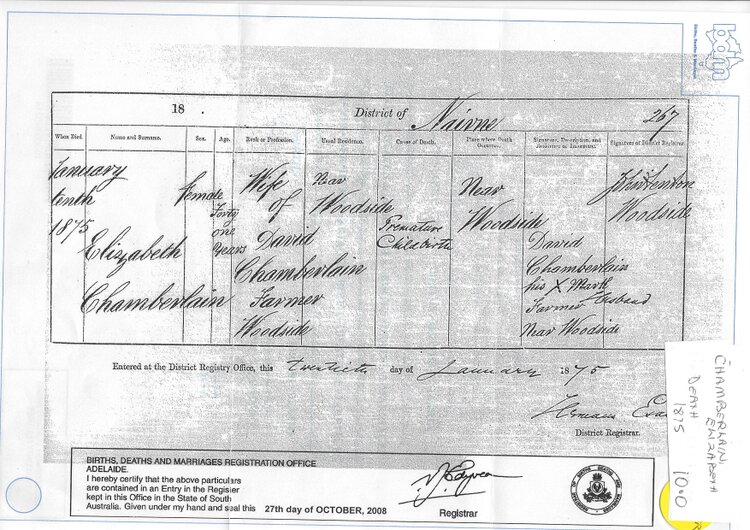 bdm
Births, Deaths & Marriages
18 .
District of
Nairne
267
When Died.
Name and Surname.
Sex.
Age.
Rank or Profession.
Usual Residence.
Cause of Death.
Place where Death Occurred.
Signature, Description, and Residence of Informant.
Signature of District Registrar.
January
tenth
1875
Elizabeth
Chamberlain
Female
Forty
one
Years
Wife
of
David
Chamberlain
Farmer
Woodside
Near
Woodside
Premature
Childbirth
Near
Woodside
David
Chamberlain
his X Mark
Farmer Husband
Near Woodside
Woodside
Entered at the District Registry Office, this twentieth day of January 1875
District Registrar.
BIRTHS, DEATHS AND MARRIAGES REGISTRATION OFFICE
ADELAIDE.
I hereby certify that the above particulars
are contained in an Entry in the Register
kept in this Office in the State of South
Australia. Given under my hand and seal this 27th day of OCTOBER, 2008
Registrar
CHAMBERLAIN,
ELIZABETH
DEATH
1875